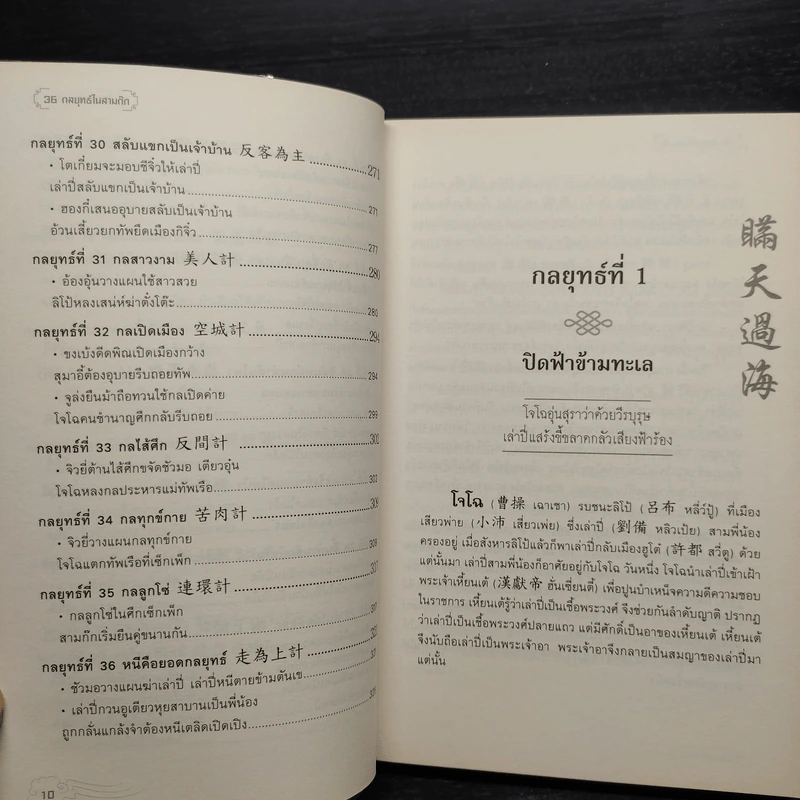 36 กลยุทธ์ในสามก๊ก
กลยุทธ์ที่ 30 สลับแขกเป็นเจ้าบ้าน 反客為主 271
• โตเกี๋ยมจะมอบชีจิ๋วให้เล่าปี่
เล่าปี่สลับแขกเป็นเจ้าบ้าน 271
• ฮองกี๋เสนออุบายสลับเป็นเจ้าบ้าน
อ้วนเสี้ยวยกทัพยึดเมืองกิจิ๋ว 277
กลยุทธ์ที่ 31 กลสาวงาม 美人計 280
• อ้องอุ้นวางแผนใช้สาวสวย
ลิโป้หลงเสน่ห์ฆ่าตั๋งโต๊ะ 280
กลยุทธ์ที่ 32 กลเปิดเมือง 空城計 294
• ขงเบ้งดีดพิณเปิดเมืองกว้าง
สุมาอี้ต้องอุบายรีบถอยทัพ 294
• จูล่งยืนม้าถือทวนใช้กลเปิดค่าย
โจโฉคนชำนาญศึกกลับรีบถอย 299
กลยุทธ์ที่ 33 กลไส้ศึก 反間計 302
• จิวยี่ต้านไส้ศึกขจัดชัวมอ เตียวอุ๋น
โจโฉหลงกลประหารแม่ทัพเรือ 302
กลยุทธ์ที่ 34 กลทุกข์กาย 苦肉計 309
• จิวยี่วางแผนกลทุกข์กาย
โจโฉแตกทัพเรือที่เซ็กเพ็ก 309
กลยุทธ์ที่ 35 กลลูกโซ่ 連環計
• กลลูกโซ่ในศึกเซ็กเพ็ก
สามก๊กเริ่มยืนคู่ขนานกัน
กลยุทธ์ที่ 36 หนีคือยอดกลยุทธ์ 走為上計
• ชัวมอวางแผนฆ่าเล่าปี่ เล่าปี่หนีตายข้ามตันเข
• เล่าปี่กวนอูเตียวหุยสาบานเป็นพี่น้อง
ถูกกลั่นแกล้งจำต้องหนีเตลิดเปิดเปิง
10
瞞天過海
กลยุทธ์ที่ 1
ปิดฟ้าข้ามทะเล
โจโฉอุ่นสุราว่าด้วยวีรบุรุษ
เล่าปี่แสร้งขี้ขลาดกลัวเสียงฟ้าร้อง
โจโฉ (曹操 เฉาเชา) รบชนะลิโป้ (呂布 หลี่ว์ปู้) ที่เมือง
เสียวพ่าย (小沛 เสี่ยวเพ่ย) ซึ่งเล่าปี่ (劉備 หลิวเป้ย) สามพี่น้อง
ครองอยู่ เมื่อสังหารลิโป้แล้วก็พาเล่าปี่กลับเมืองฮูโต๋ (許都 สวี่ตู) ด้วย
แต่นั้นมา เล่าปี่สามพี่น้องก็อาศัยอยู่กับโจโฉ วันหนึ่ง โจโฉนำเล่าปี่เข้าเฝ้า
พระเจ้าเหี้ยนเต้ (漢獻帝 ฮั่นเซี่ยนตี้) เพื่อปูนบำเหน็จความดีความชอบ
ในราชการ เหี้ยนเต้รู้ว่าเล่าปี่เป็นเชื้อพระวงศ์ จึงช่วยกันลำดับญาติ ปรากฏ
ว่าเล่าปี่เป็นเชื้อพระวงศ์ปลายแถว แต่มีศักดิ์เป็นอาของเหี้ยนเต้ เหี้ยนเต้
จึงนับถือเล่าปี่เป็นพระเจ้าอา พระเจ้าอาจึงกลายเป็นสมญาของเล่าปี่มา
แต่นั้น